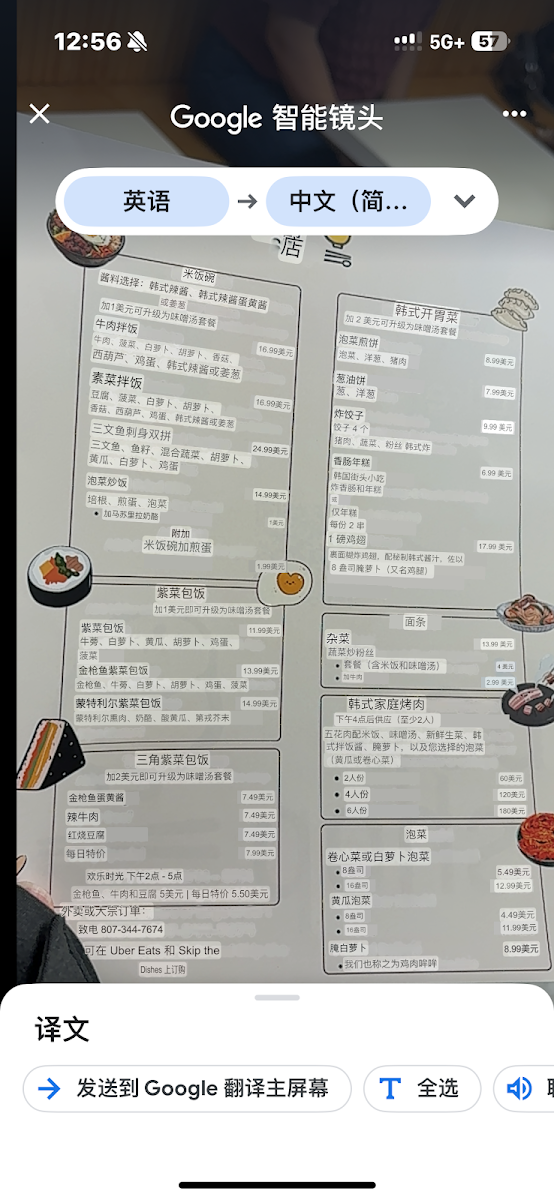 12:56
5G+ 57
Google 智能镜头
英语 → 中文（简...
店
米饭碗
酱料选择：韩式辣酱、韩式辣酱蛋黄酱
或姜葱
加1美元可升级为味噌汤套餐
牛肉拌饭
16.99美元
牛肉、菠菜、白萝卜、胡萝卜、香菇、
西葫芦、鸡蛋、韩式辣酱或姜葱
素菜拌饭
16.99美元
豆腐、菠菜、白萝卜、胡萝卜、
香菇、西葫芦、鸡蛋、韩式辣酱或姜葱
三文鱼刺身双拼
24.99美元
三文鱼、鱼籽、混合蔬菜、胡萝卜、
黄瓜、白萝卜、鸡蛋
泡菜炒饭
14.99美元
培根、煎蛋、泡菜
• 加马苏里拉奶酪
1美元
附加
米饭碗加煎蛋
1.99美元
紫菜包饭
加1美元即可升级为味噌汤套餐
紫菜包饭
11.99美元
牛蒡、白萝卜、黄瓜、胡萝卜、鸡蛋、
菠菜
金枪鱼紫菜包饭
13.99美元
金枪鱼、牛蒡、白萝卜、胡萝卜、鸡蛋、菠菜
蒙特利尔紫菜包饭
14.99美元
蒙特利尔熏肉、奶酪、酸黄瓜、第戎芥末
三角紫菜包饭
加2美元即可升级为味噌汤套餐
金枪鱼蛋黄酱
7.49美元
辣牛肉
7.49美元
红烧豆腐
7.49美元
每日特价
7.99美元
欢乐时光 下午2点 - 5点
金枪鱼、牛肉和豆腐 5美元 | 每日特价 5.50美元
外卖或大宗订单：
致电 807-344-7674
可在 Uber Eats 和 Skip the
Dishes 上订购
韩式开胃菜
加 2 美元可升级为味噌汤套餐
泡菜煎饼
泡菜、洋葱、猪肉
8.99美元
葱油饼
葱、洋葱
7.99美元
炸饺子
9.99 美元
饺子 4 个
猪肉、蔬菜、粉丝 韩式炸
香肠年糕
6.99 美元
韩国街头小吃
炸香肠和年糕
或
仅年糕
每份 2 串
1 磅鸡翅
17.99 美元
裹面糊炸鸡翅，配秘制韩式酱汁，佐以
8 盎司腌萝卜（又名鸡腿）
面条
杂菜
13.99 美元
蔬菜炒粉丝
• 套餐（含米饭和味噌汤）
4 美元
• 加牛肉
2.99 美元
韩式家庭烤肉
下午4点后供应（至少2人）
五花肉配米饭、味噌汤、新鲜生菜、韩
式拌饭酱、腌萝卜，以及您选择的泡菜
（黄瓜或卷心菜）
• 2人份
60美元
• 4人份
120美元
• 6人份
180美元
泡菜
卷心菜或白萝卜泡菜
• 8盎司
5.49美元
• 16盎司
12.99美元
黄瓜泡菜
• 8盎司
4.49美元
• 16盎司
11.99美元
腌白萝卜
8.99美元
• 我们也称之为鸡肉哞哞
译文
发送到 Google 翻译主屏幕
全选